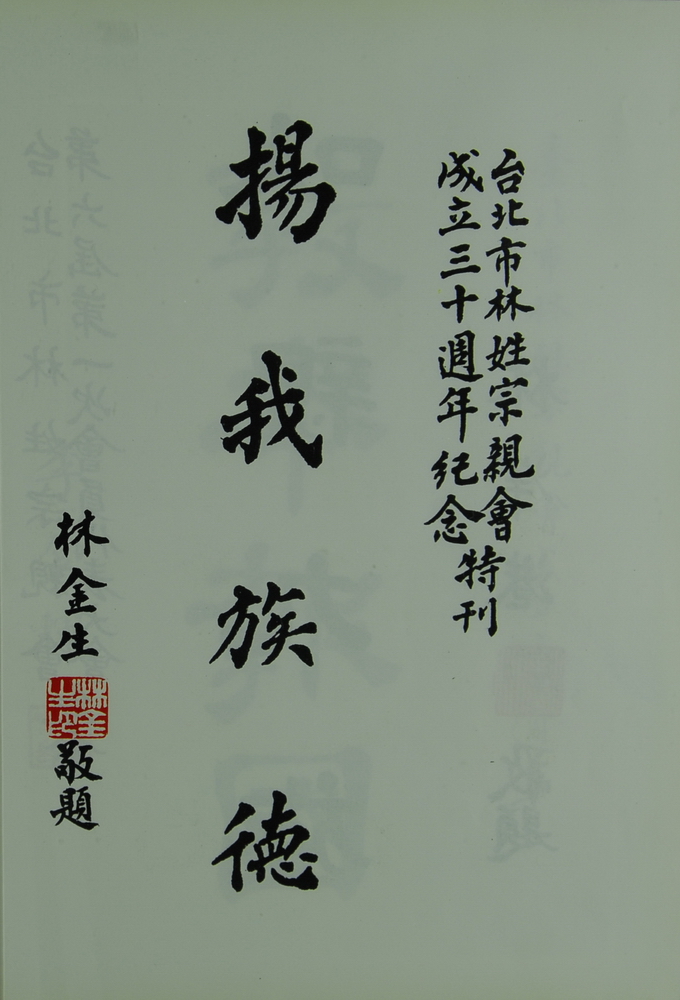 台北市林姓宗親會
成立三十週年紀念
特刊
揚我族德
林金生
林金生印
敬題